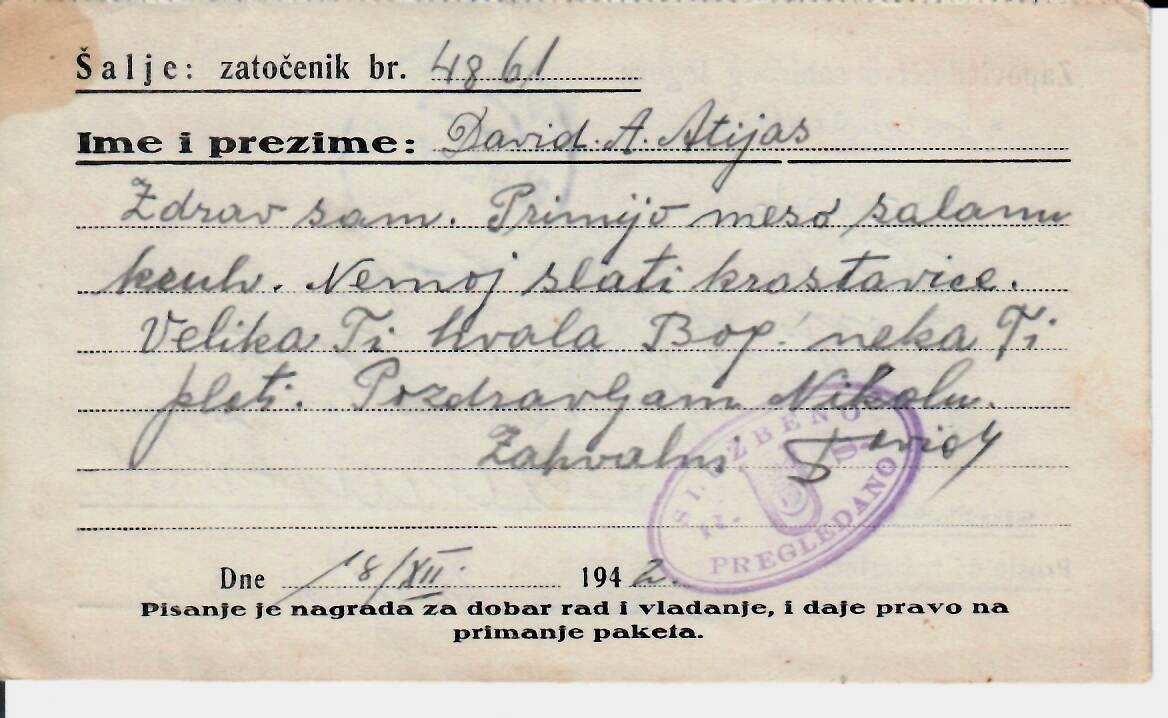 Šalje: zatočenik br. 4861
Ime i prezime: David. A. Atijas
Zdrav sam. Primijo meso salamu
kruh. Nemoj slati krastavice.
Velika Ti hvala Bog. neka Ti
plati. Pozdravljam Nikolu.
Zahvalni David
SLUŽBENO
U S
PREGLEDANO
Dne 18/XII. 1942.
Pisanje je nagrada za dobar rad i vladanje, i daje pravo na
primanje paketa.